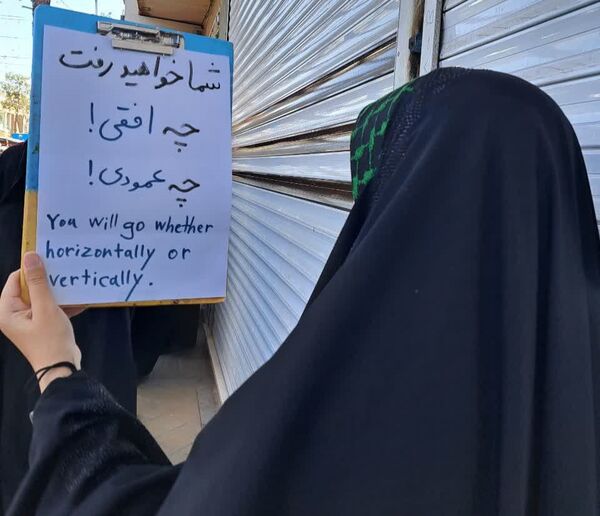 شما خواهید رفت
چه افقی!
چه عمودی!
You will go whether
horizontally or
vertically.